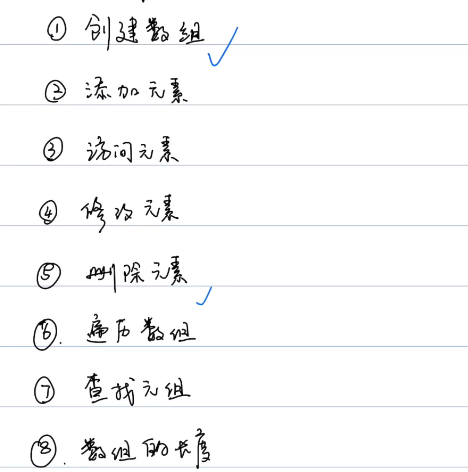 ① 创建数组
② 添加元素
③ 访问元素
④ 修改元素
⑤ 删除元素
⑥. 遍历数组
⑦ 查找元组
⑧. 数组的长度